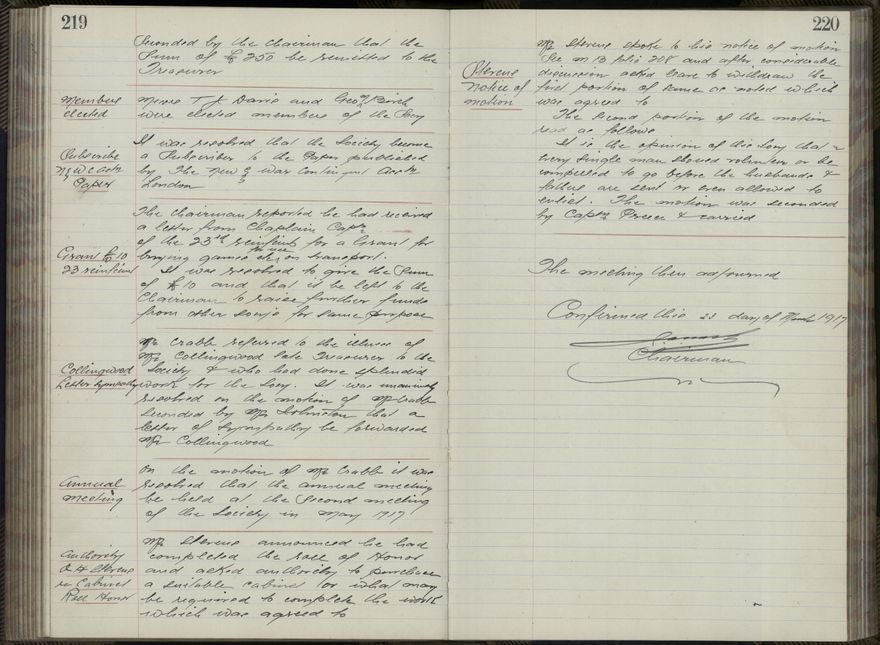 219
Seconded by the Chairman that the
Sum of £250 be remitted to the
Treasurer
Members
elected
Messrs T J Davis and Geo Birch
were elected members of the Socy
Subscribe
Paper
It was resolved that the Society become
a Subscriber to the Paper published
by The New Z War Contingent Assn
London
Grant £10
23 reinfcmt
The Chairman reported he had received
a letter from Chaplain Capt
of the 23rd reinfcmts for a Grant for
buying games etc for use on transport.
It was resolved to give the Sum
of £10 and that it be left to the
Chairman to raise further funds
from other Socys for same purpose
Collingwood
Letter sympathy
Mr Crabb referred to the illness of
Mr Collingwood late Treasurer to the
Society & who had done splendid
work for the Socy. It was unanimsly
resolved on the motion of Mr Crabb
Seconded by Mr Johnston that a
letter of sympathy be forwarded
Mr Collingwood
Annual
meeting
On the motion of Mr Crabb it was
resolved that the annual meeting
be held at the Second meeting
of the Society in May 1917
Authority
A H Stevens
re Cabinet
Roll Honor
Mr Stevens announced he had
completed the roll of Honor
and asked authority to purchase
a suitable cabinet or what may
be required to complete the work
which was agreed to
220
Stevens
notice of
motion
Mr Stevens spoke to his notice of motion
See M B folio 218 and after considerable
discussion asked leave to withdraw the
first portion of same as noted which
was agreed to
The Second portion of the motion
read as follows
It is the opinion of this Socy that
every single man should volunteer or be
compelled to go before the husbands &
fathers are sent or even allowed to
enlist. The motion was seconded
by Capt Preece & carried
The meeting then adjourned
Confirmed this 22 day of March 1917
Chairman